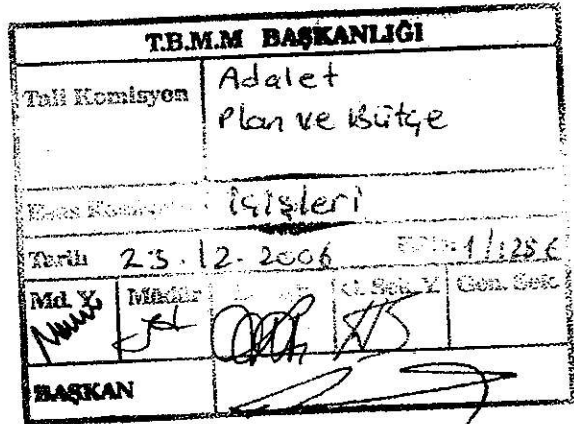 T.B.M.M BAŞKANLIĞI
Tali Komisyon Adalet
Plan ve Bütçe
Esas Komisyon İçişleri
Tarih 25.12.2006 1/1286
Md. Y. Müdür G. Sek. Y. Gen. Sek.
BAŞKAN